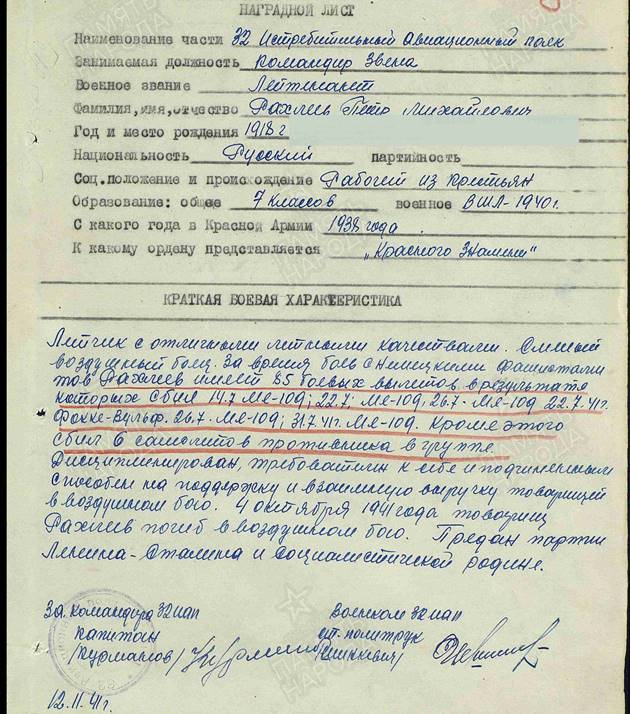 НАГРАДНОЙ ЛИСТ
Наименование части 32 Истребительный Авиационный полк
Занимаемая должность Командир Звена
Военское звание Лейтенант
Фамилия,имя,отчество Рахлеев Пётр Михайлович
Год и место рождения 1918 г
Национальность Русский партийность
Соц.положение и происхождение Рабочий из Крестьян
Образование: общее 7 классов военное ВШЛ-1940г.
С какого года в Красной Армии 1938 года
К какому ордену представляется „Красного Знамени"
КРАТКАЯ БОЕВАЯ ХАРАКТЕРИСТИКА
Летчик с отличными летными качествами. Смелый
воздушный боец. За время боев с Немецкими фашистами
тов Рахлеев имеет 85 боевых вылетов в результате
которых сбил 14.7 МЕ-109; 22.7; МЕ-109, 26.7- МЕ-109 22.7.41г.
Фокке-Вульф. 26.7. МЕ-109; 31.7.41г. МЕ-109. Кроме этого
сбил 6 самолетов противника в группе.
Дисциплинирован, требователен к себе и подчиненным
способен на поддержку и взаимную выручку товарищей
в воздушном бою. 4 октября 1941 года товарищ
Рахлеев погиб в воздушном бою. Предан партии
Ленина-Сталина и социалистической родине.
За. командира 32 иап Военком 32 иап
капитан ст. политрук
/Курматов/
12.11.41г.